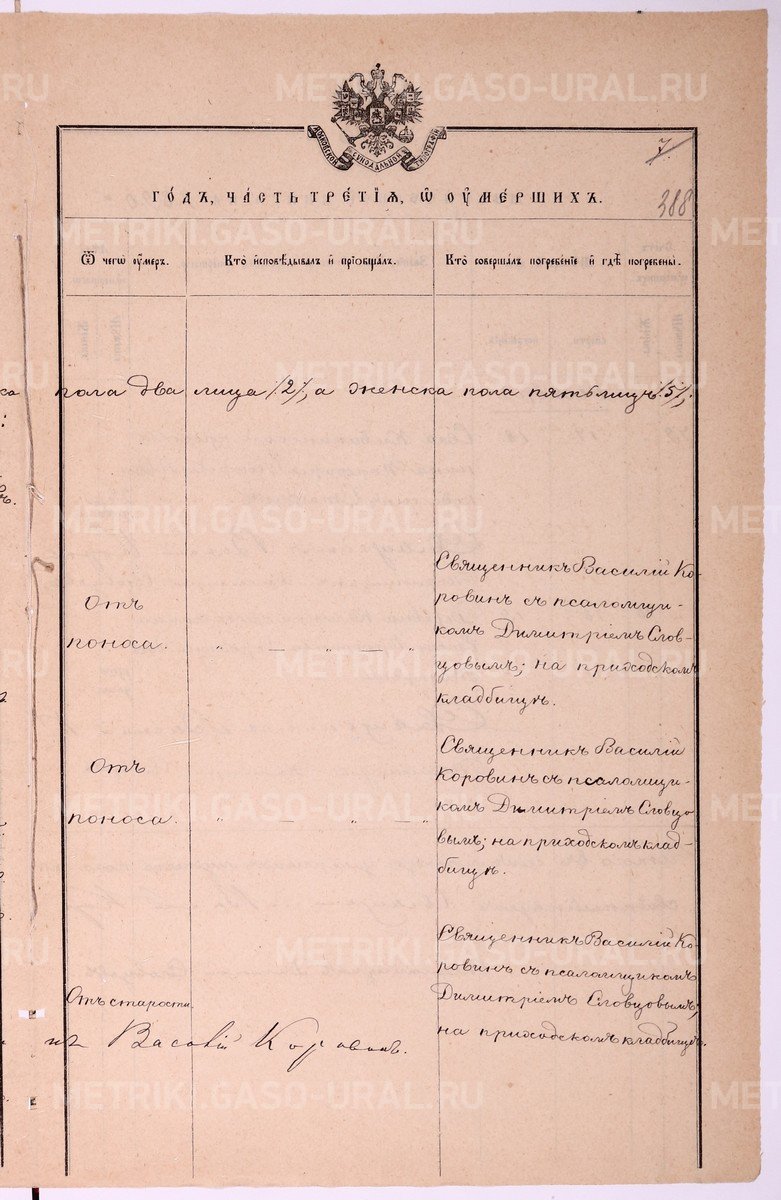 МОСКОВСКОЙ СѴНОДАЛЬНОЙ ТИПОГРАФІИ
7.
388
ГОДЪ, ЧАСТЬ ТРЕТІЯ, Ѡ ОУМЕРШИХЪ.
Ѿ чегѡ оумеръ.
Кто исповѣдывалъ и пріобщалъ.
Кто совершалъ погребеніе и гдѣ погребены.
пола два лица /2/, а женска пола пять лицъ /5/;
Отъ
поноса.
„ — „ — „
Священникъ Василій Ко-
ровинъ съ псаломщи-
комъ Димитріемъ Слов-
цовымъ; на приходскомъ
кладбищѣ.
Отъ
поноса.
„ — „ — „
Священникъ Василій
Коровинъ съ псаломщи-
комъ Димитріемъ Словцо-
вымъ; на приходскомъ клад-
бищѣ.
Отъ старости
Священникъ Василій Ко-
ровинъ съ псаломщикомъ
Димитріемъ Словцовымъ;
на приходскомъ кладбищѣ.
къ Василій Коровинъ.
METRIKI.GASO-URAL.RU